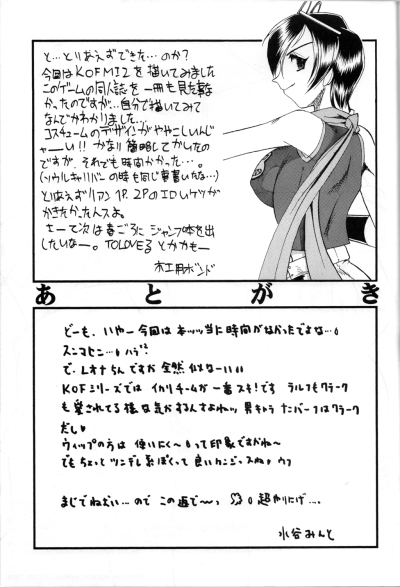 と…とりあえずできた…のか?
今回はKOFMI2を描いてみました
このゲームの同人誌を一冊も見た事な
かったのですが…自分で描いてみて
なんでかわかりました…
コスチュームのデザインがややこしいんじ
ゃーい!! かなり簡略してかいたの
ですが、それでも時間かかった…。
(ソウルキャリバーの時も同じ事書いたな…)
とりあえずリアン1P.2Pのエロいケツが
かきたかったんスよ。
さーて次は春ごろにジャンプ本を出
したいなー。TOLOVEるとかかもー
木工用ボンド
あとがき
どーも、いやー今回は本ッッ当に時間がなかったですな…。
スンマセン…。
で、レオナちんですが全然似なーいい
KOFシリーズでは イカリチームが一番スキ!です ラルフもクラーク
も愛されてる様な気がするんすよねッ 男キャラナンバー1はクラーク
だし
ウィップの方は 使いにく〜。って印象ですかね〜
でもちょっとツンデレ系ぽくって良いカンジっスね。ウフ
まじでねむい…ので この辺で〜っ 超やりにげ…
水谷みんと